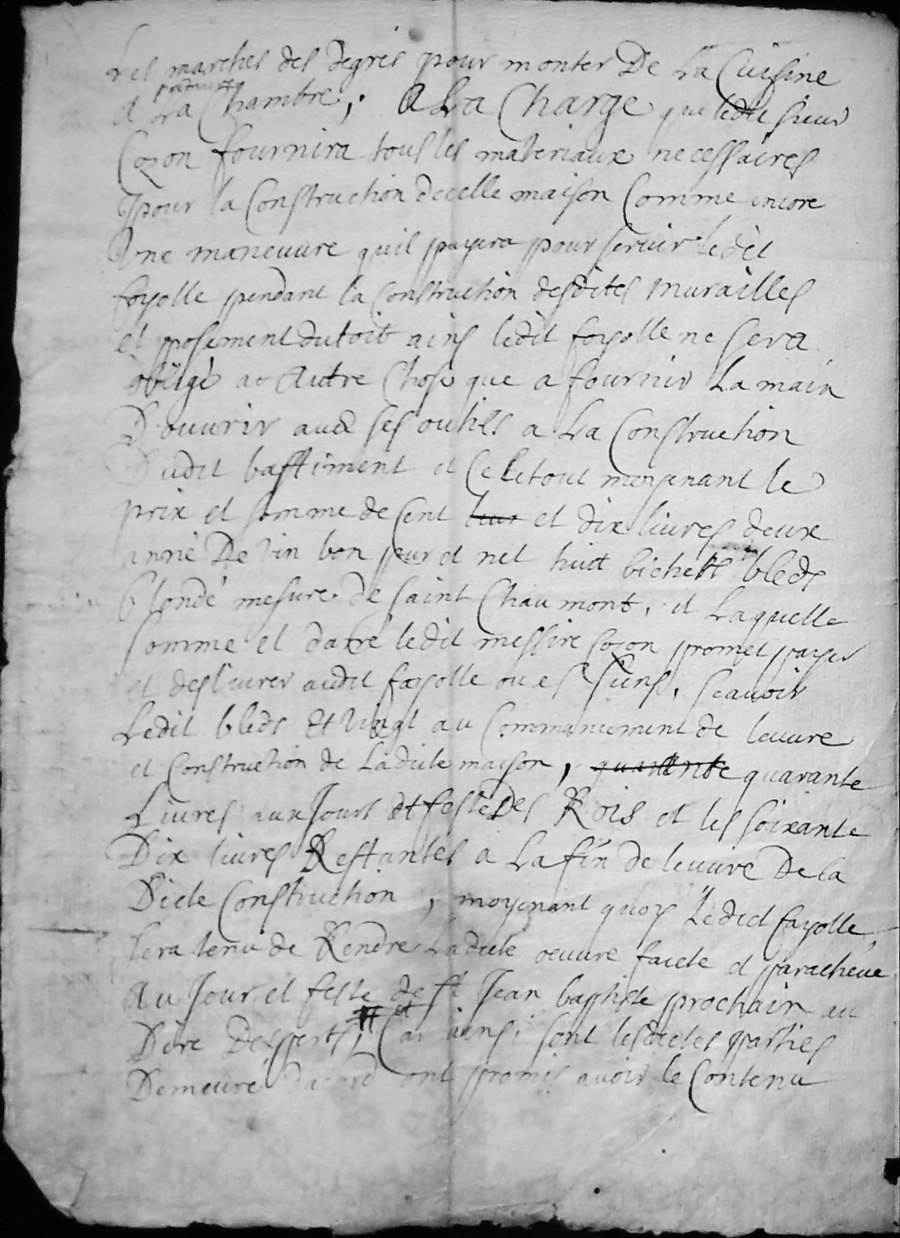 les marches des degrés pour monter De La Cuisine
A La Chambre, A La Charge que ledit sieur
Cozon fournira tous les materiaux necessaires
pour la Construction dicelle maison Comme encore
Une maneuvre quil payera pour servir ledit
fayolle pendant la Construction desdites murailles
et posement du toit ains ledit fayolle ne sera
obligé a Autre Chose que a fournir La main
D'ouvrir avec ses outils a La Construction
Dudit bastiment et Ce le tout moyenant le
prix et somme de Cent et dix livres deux
anné De Vin bon pur et net huit bichets bleds
blondé mesure de saint Chaumont, et Laquelle
somme et ledit messire Cozon promet payer
et deslivrer audit fayolle ou es siens, scavoir
Ledit bleds et Vingt au Commancement de leuvre
et Construction de Ladite maison, quarante quarante
Livres aux Jours et feste Des Rois et les soixante
Dix livres Restantes a La fin de leuvre De la
Dicte Construction, moyenant quoy Ledict fayolle
sera tenu de Rendre Ladite oeuvre faicte et paracheve
Au Jour et feste de st Jean baptiste prochain au
Dire Desperts, Car ainsi sont lesdictes parties
Demeuré Dacord ont promis avoir le Contenu